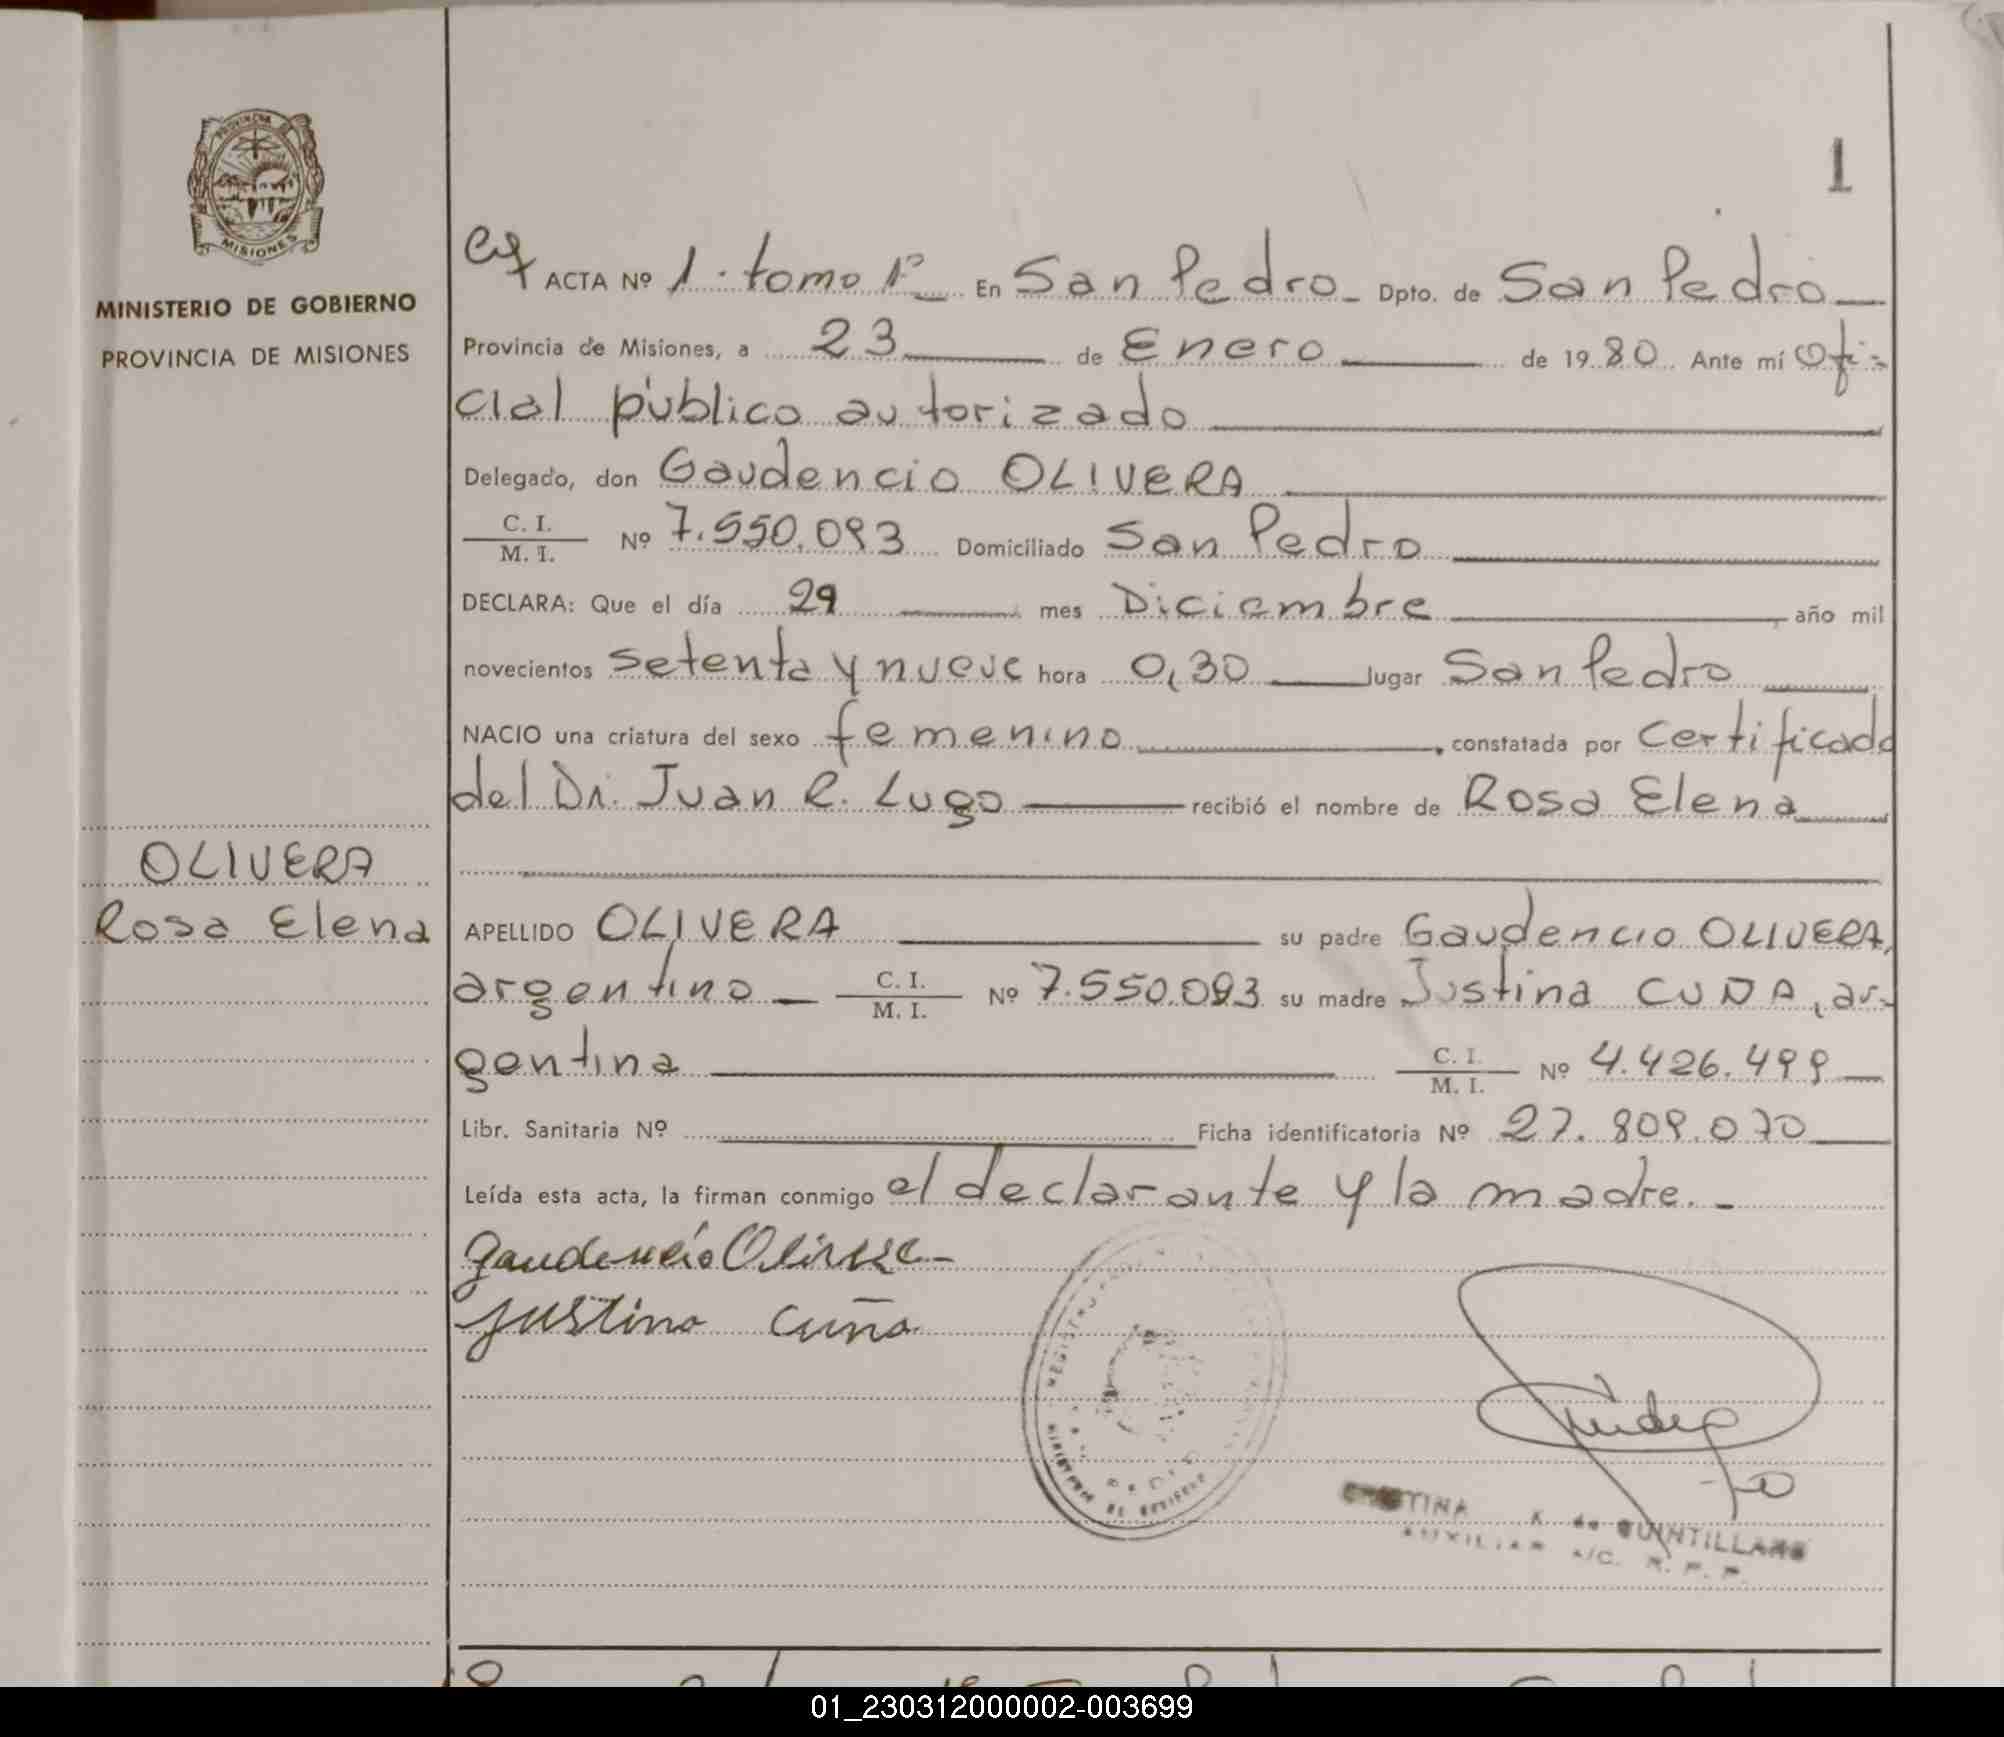 PROVINCIA DE
MISIONES
MINISTERIO DE GOBIERNO
PROVINCIA DE MISIONES
OLIVERA
Rosa Elena
1
ACTA Nº 1. tomo 1º En San Pedro Dpto. de San Pedro
Provincia de Misiones, a 23 de Enero de 1980 Ante mí ofi-
cial público autorizado
Delegado, don Gaudencio OLIVERA
C. I.
M. I. Nº 7.550.093 Domiciliado San Pedro
DECLARA: Que el día 29 mes Diciembre, año mil
novecientos setenta y nueve hora 0,30 lugar San Pedro
NACIO una criatura del sexo femenino, constatada por certificado
del Dr. Juan R. Lugo recibió el nombre de Rosa Elena
APELLIDO OLIVERA su padre Gaudencio OLIVERA,
argentino C. I.
M. I. Nº 7.550.093 su madre Justina CUÑA, ar-
gentina C. I.
M. I. Nº 4.426.499
Libr. Sanitaria Nº Ficha identificatoria Nº 27.809.070
Leída esta acta, la firman conmigo el declarante y la madre.-
Gaudencio Olivera
Justina Cuña
QUINTILLANO
AUXILIAR A/C. R. P. P.
01_230312000002-003699